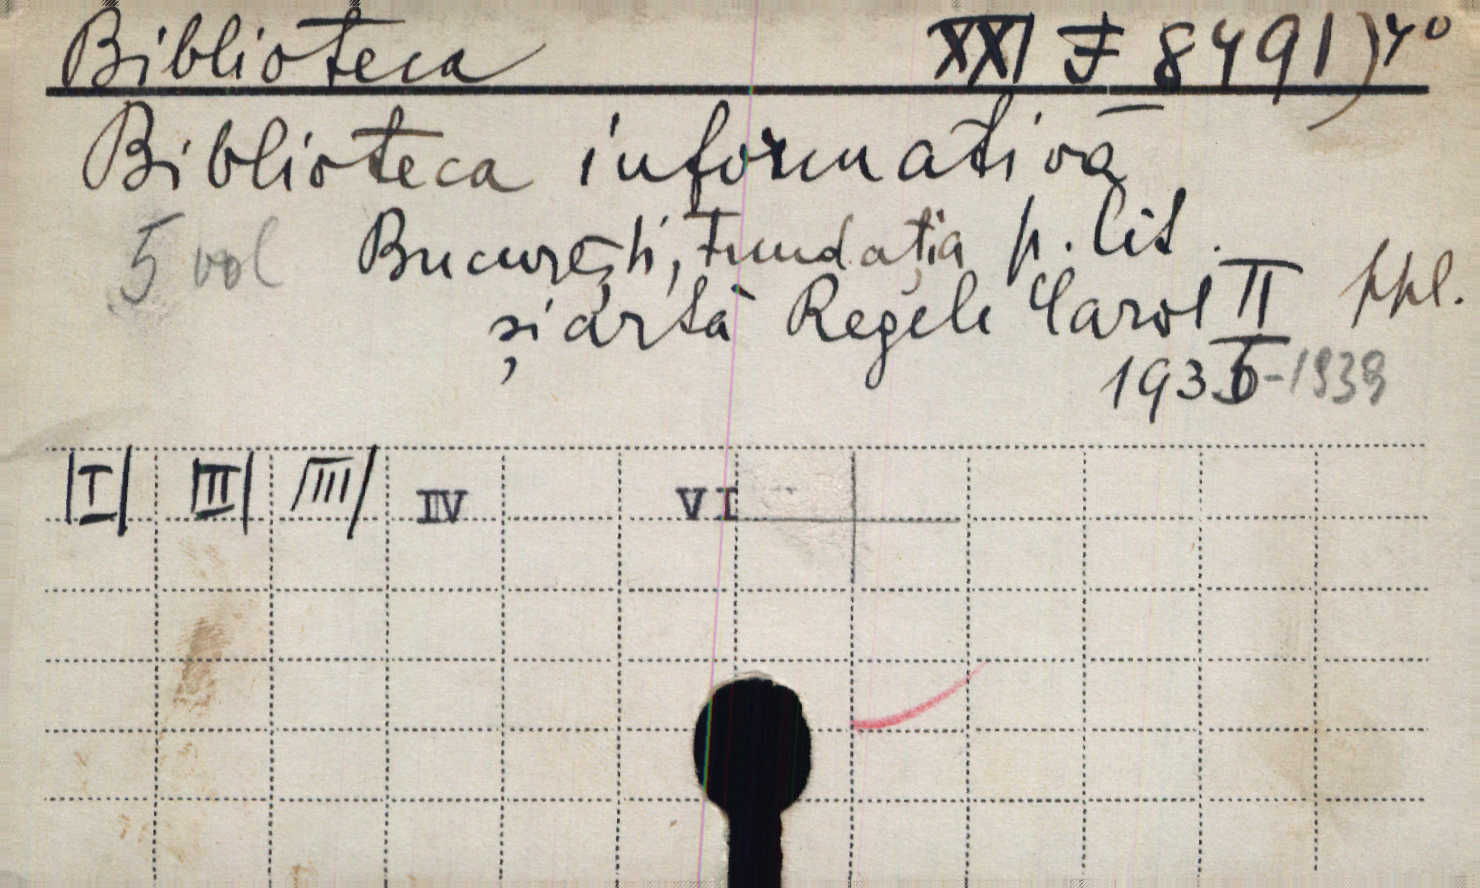 Biblioteca XXI F 8491) 4°
Biblioteca informativă
5 vol București, Fundația p. lit.
și artă Regele Carol II ppl.
1935-1939
I II III IV VI